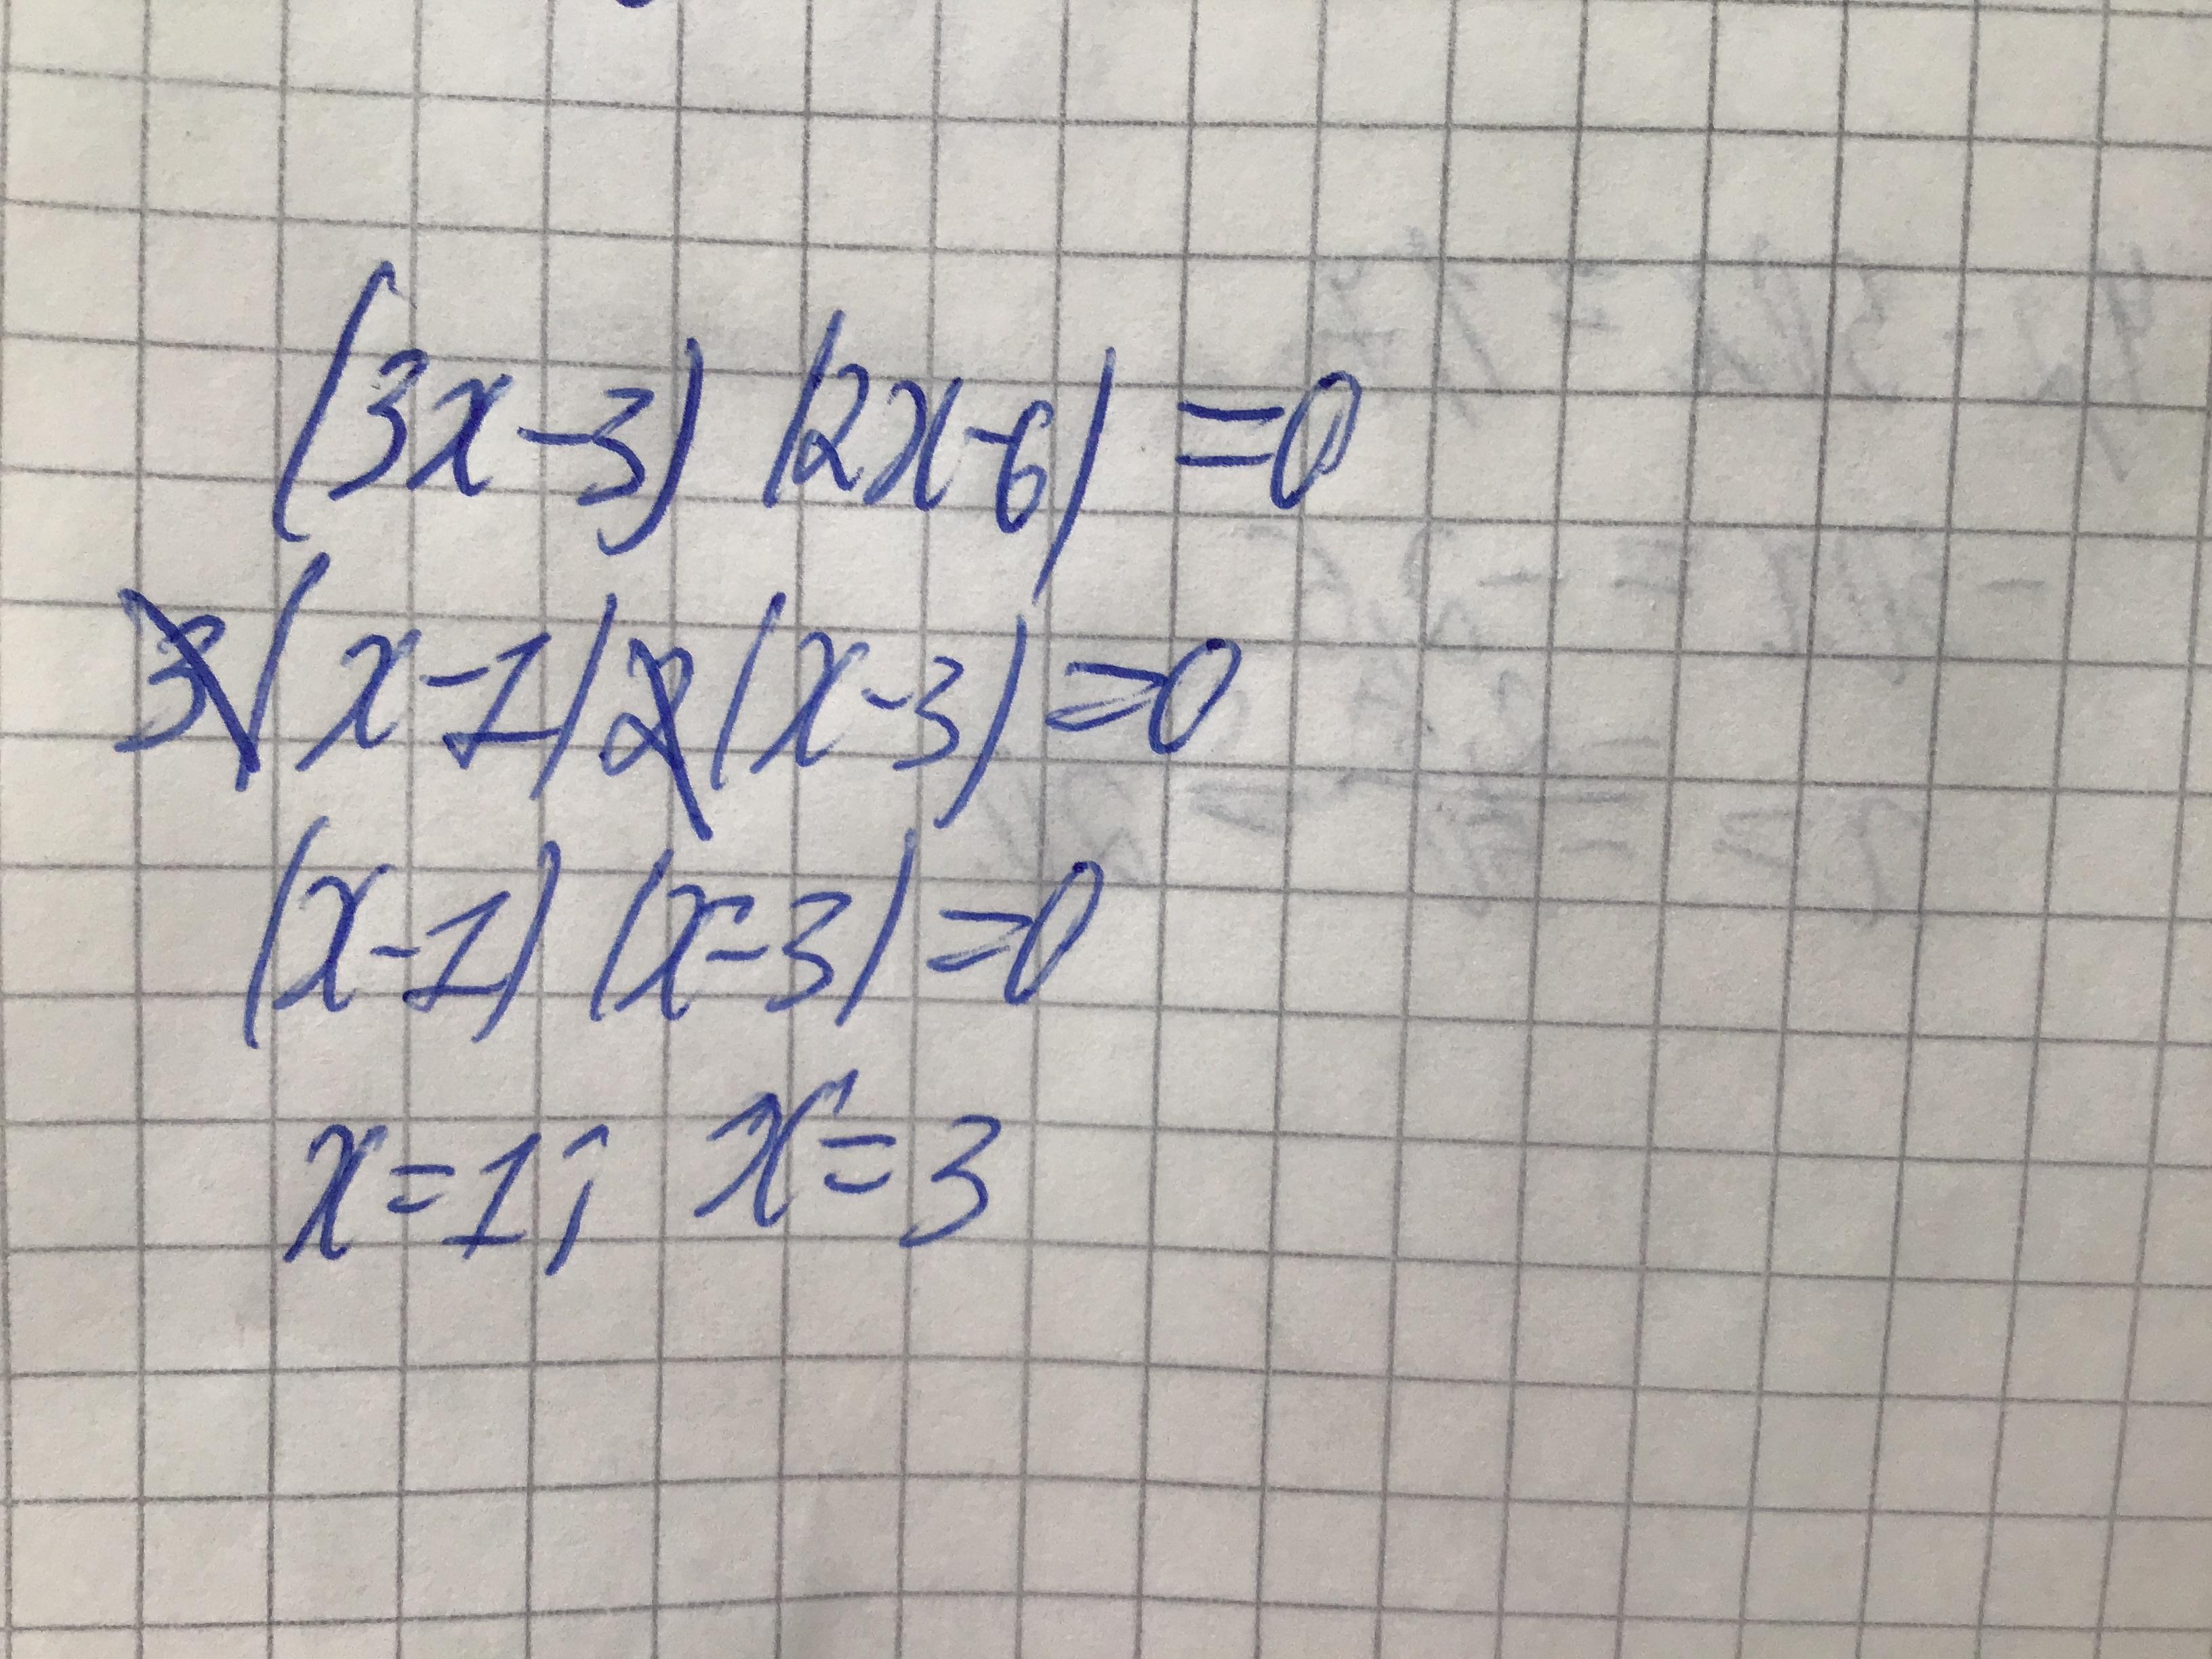 (3x-3) (2x-6) =0
3(x-1)2(x-3)=0
(x-1) (x-3)=0
x=1; x=3